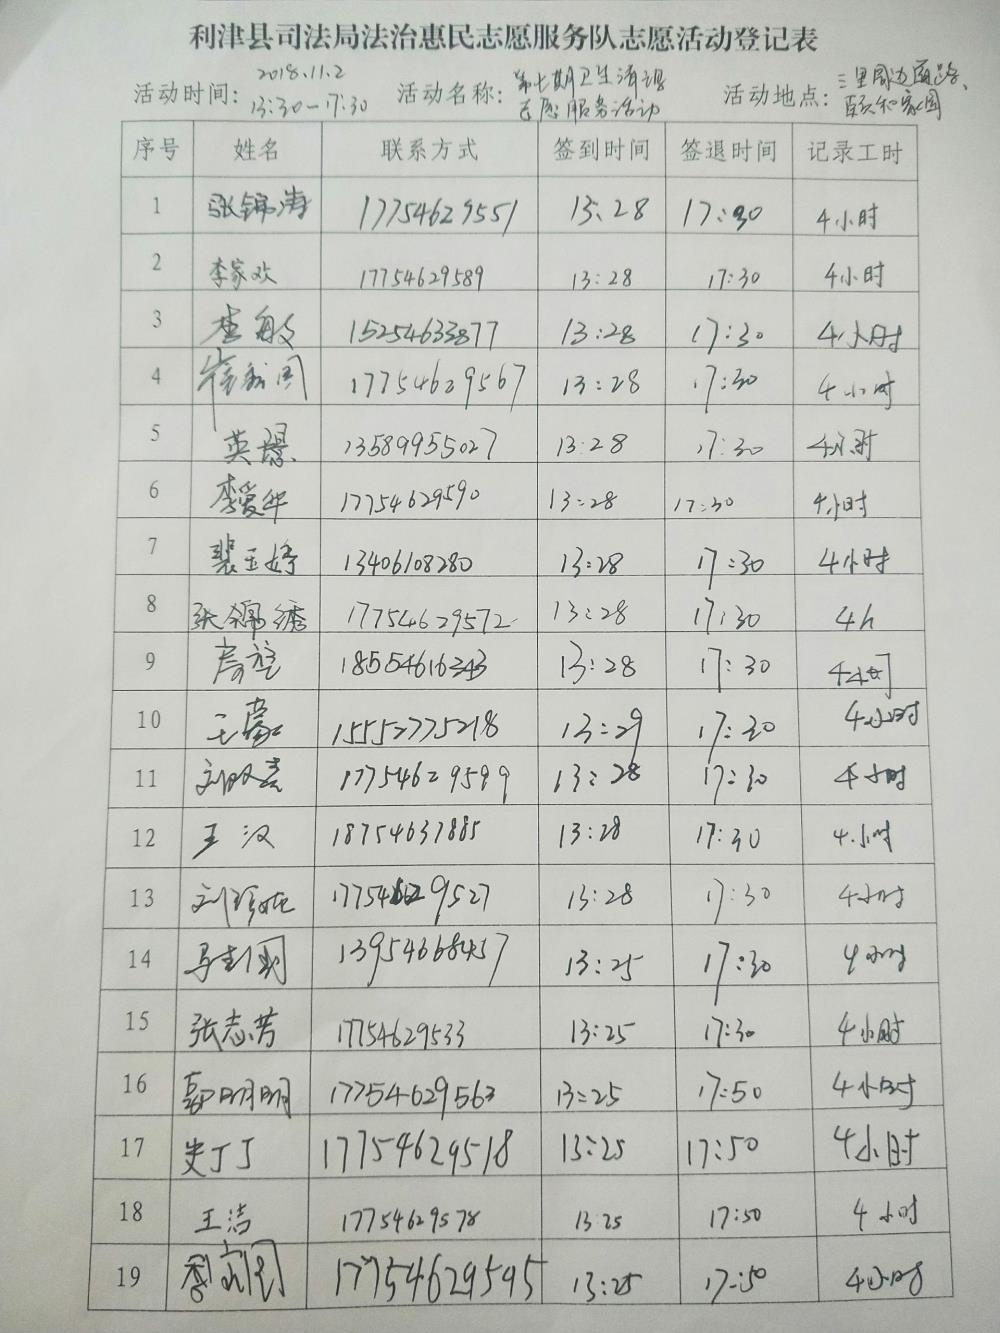 利津县司法局法治惠民志愿服务队志愿活动登记表
活动时间: 2018.11.2 13:30-17:30 活动名称: 第七期卫生清理志愿服务活动 活动地点: 三里周边道路、颐和家园
序号 姓名 联系方式 签到时间 签退时间 记录工时
1 张锦涛 17754629551 13:28 17:30 4小时
2 李家欢 17754629589 13:28 17:30 4小时
3 李敏 15254633877 13:28 17:30 4小时
4 17754629567 13:28 17:30 4小时
5 13589955027 13:28 17:30 4小时
6 李爱华 17754629590 13:28 17:30 4小时
7 裴玉婷 13406108280 13:28 17:30 4小时
8 张锦绣 17754629572 13:28 17:30 4h
9 18554616343 13:28 17:30 4小时
10 王蒙 15552775218 13:29 17:30 4小时
11 17754629599 13:28 17:30 4小时
12 王汉 18754637885 13:28 17:30 4小时
13 17754629527 13:28 17:30 4小时
14 13954668457 13:25 17:30 4小时
15 张志芳 17754629533 13:25 17:30 4小时
16 郭明明 17754629563 13:25 17:50 4小时
17 史丁丁 17754629518 13:25 17:50 4小时
18 王洁 17754629578 13:25 17:50 4小时
19 17754629595 13:25 17:50 4小时